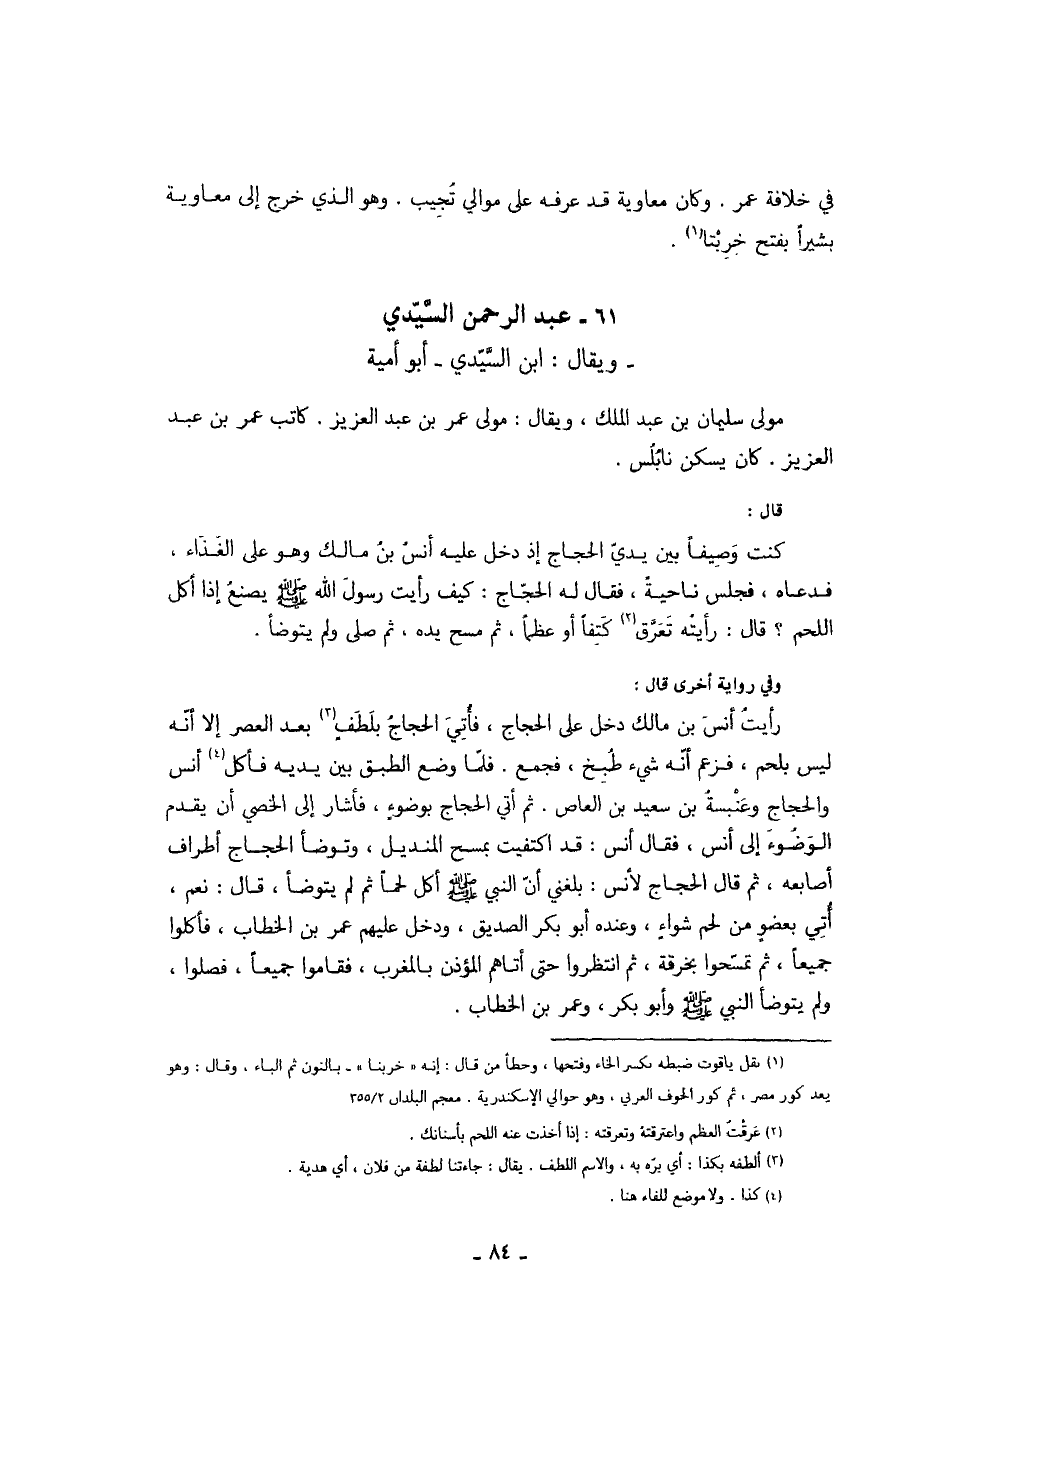 في خلافة عمر . وكان معاوية قد عرفه على موالي تُجِيب . وهو الذي خرج إلى معاوية
بشيراً بفتح خِرِبْتا(١) .
٦١ ـ عبد الرحمن السَّيّدي
ـ ويقال : ابن السَّيّدي ـ أبو أمية
مولى سليمان بن عبد الملك ، ويقال : مولى عمر بن عبد العزيز . كاتب عمر بن عبد
العزيز . كان يسكن نابُلُس .
قال :
كنت وَصِيفاً بين يديّ الحجاج إذ دخل عليه أنسُ بنُ مالك وهو على الغَذَاء ،
فدعاه ، فجلس ناحيةً ، فقال له الحجّاج : كيف رأيت رسولَ الله ﷺ يصنعُ إذا أكل
اللحم ؟ قال : رأيتُه تَعَرَّق(٢) كَتِفاً أو عظماً ، ثم مسح يده ، ثم صلى ولم يتوضأ .
وفي رواية أخرى قال :
رأيتُ أنسَ بن مالك دخل على الحجاج ، فأُتِيَ الحجاجُ بلَطَفٍ(٣) بعد العصر إلا أنّه
ليس بلحم ، فزعم أنّه شيء طُبخ ، فجمع . فلمّا وضع الطبق بين يديه فأكل(٤) أنس
والحجاج وعَنْبسةُ بن سعيد بن العاص . ثم أتي الحجاج بوضوءٍ ، فأشار إلى الخصي أن يقدم
الوَضُوءَ إلى أنس ، فقال أنس : قد اكتفيت بمسح المنديل ، وتوضأ الحجاج أطراف
أصابعه ، ثم قال الحجاج لأنس : بلغني أنّ النبي ﷺ أكل لحماً ثم لم يتوضأ ، قال : نعم ،
أُتِي بعضوٍ من لحم شواءٍ ، وعنده أبو بكر الصديق ، ودخل عليهم عمر بن الخطاب ، فأكلوا
جميعاً ، ثم تمسّحوا بخرقة ، ثم انتظروا حتى أتاهم المؤذن بالمغرب ، فقاموا جميعاً ، فصلوا ،
ولم يتوضأ النبي ﷺ وأبو بكر ، وعمر بن الخطاب .
(١) نقل ياقوت ضبطه بكسر الخاء وفتحها ، وخطأ من قال : إنه « خربنا » ـ بالنون ثم الباء ، وقال : وهو
يعد كور مصر ، ثم كور الحوف الغربي ، وهو حوالي الإسكندرية . معجم البلدان ٣٥٥/٢
(٢) عَرقْتُ العظم واعترقتهُ وتعرقته : إذا أخذت عنه اللحم بأسنانك .
(٣) ألطفه بكذا : أي برّه به ، والاسم اللطف . يقال : جاءتنا لطفة من فلان ، أي هدية .
(٤) كذا . ولا موضع للفاء هنا .
ـ ٨٤ ـ